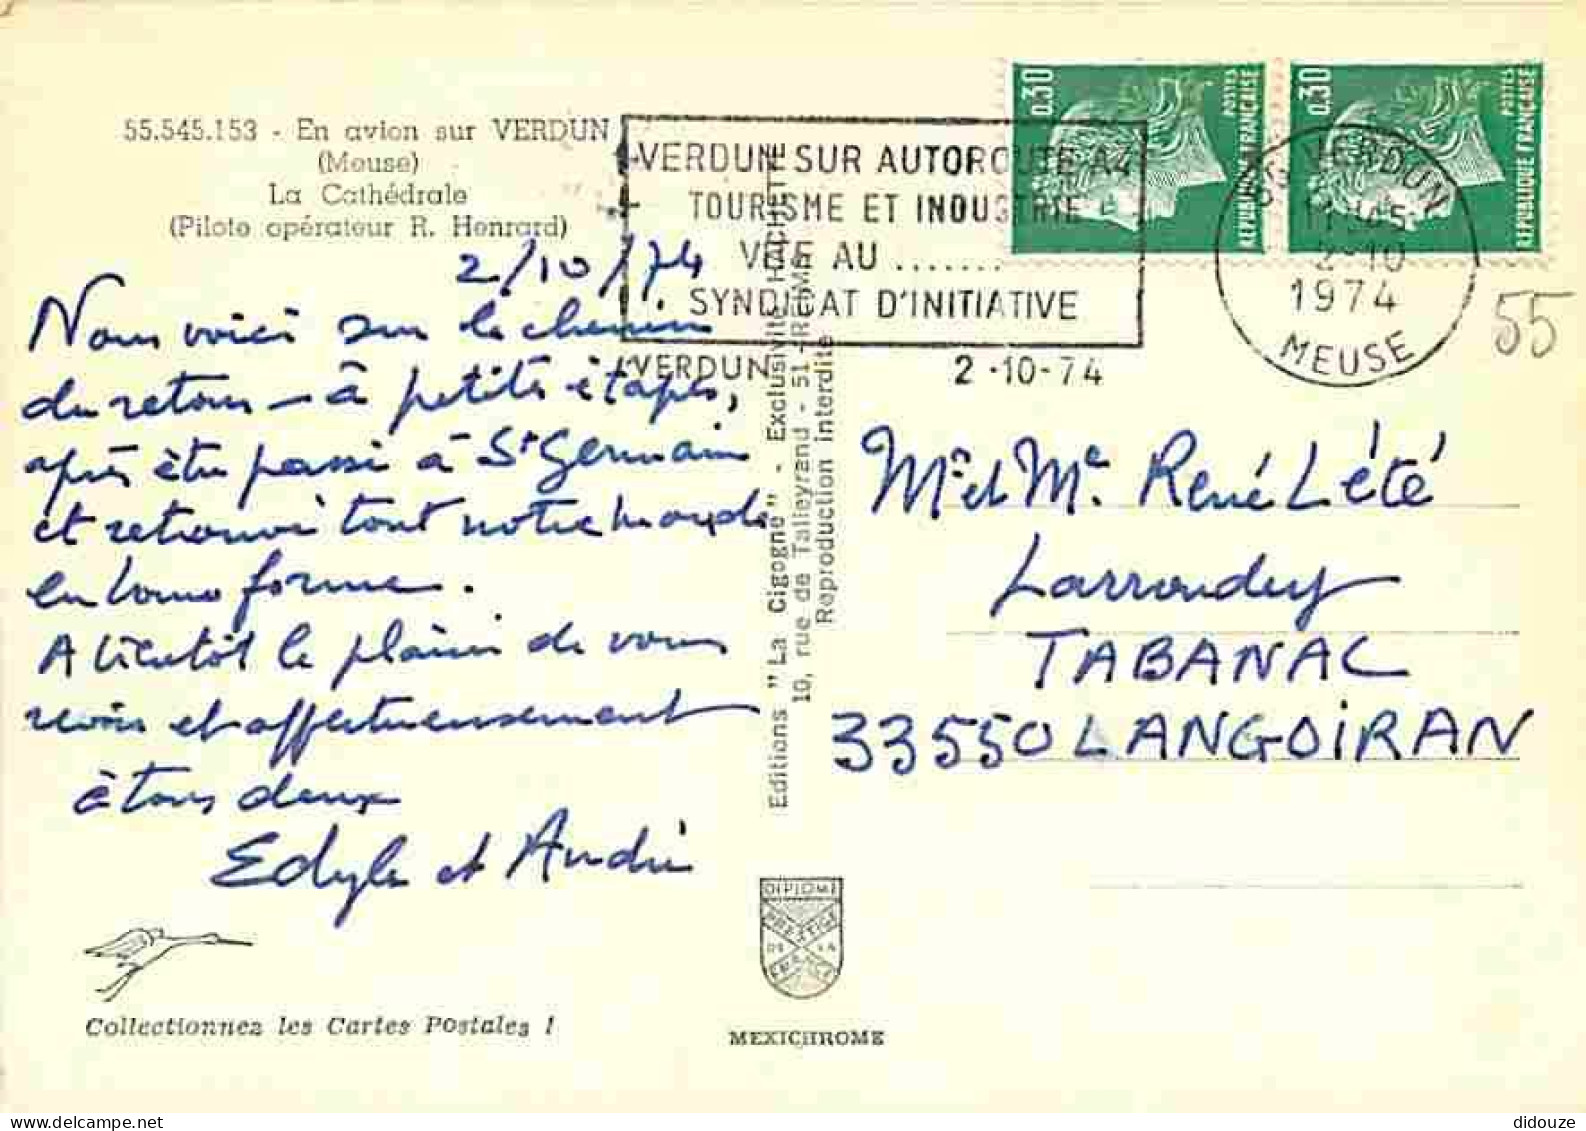 55.545.153 - En avion sur VERDUN
(Meuse)
La Cathédrale
(Pilote opérateur R. Henrard)
2/10/74
Nous voici sur le chemin
du retour - à petites étapes,
après être passé à St Germain
et retrouvé tout notre monde
en bonne forme.
A bientôt le plaisir de vous
revoir et affectueusement
à tous deux
Edyle et André
Collectionnez les Cartes Postales !
Editions "La Cigogne" - Exclusivité HACHETTE
10, rue de Talleyrand - 51 - REIMS
Reproduction interdite
DIPLOME
PRESTIGE
DE LA
FRANCE
MEXICHROME
VERDUN SUR AUTOROUTE A4
TOURISME ET INDUSTRIE
VITE AU .......
SYNDICAT D'INITIATIVE
VERDUN
2-10-74
0.30
POSTES
REPUBLIQUE FRANÇAISE
0.30
POSTES
REPUBLIQUE FRANÇAISE
55 VERDUN
2-10
1974
MEUSE
55
Mr et Me René Lété
Larroudey
TABANAC
33550 LANGOIRAN
didouze